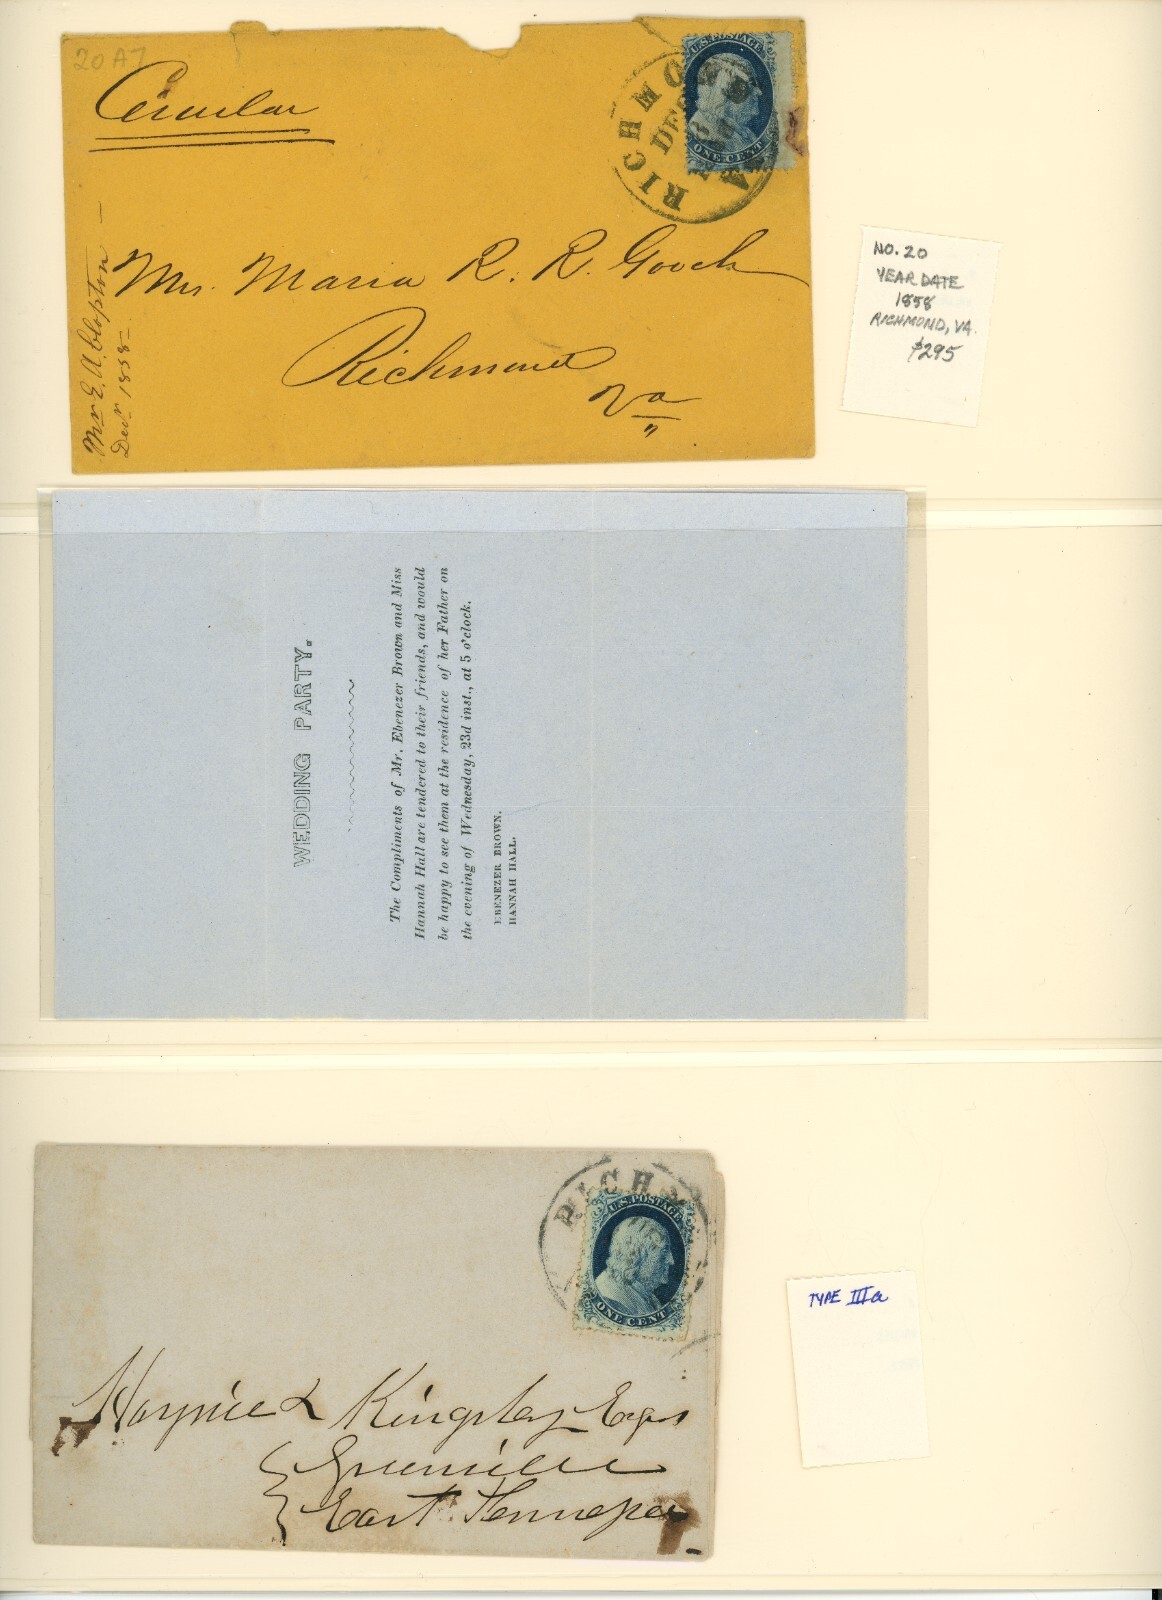 20 A7
Circular
RICHMO VA
DEC
U.S. POSTAGE
ONE CENT
Mrs. Maria R. R. Gooch
Richmond
Va
"
Mr E. A. Clopton
Decr 1858
NO. 20
YEAR DATE
1858
RICHMOND, VA.
$295
WEDDING PARTY.
The Compliments of Mr. Ebenezer Brown and Miss
Hannah Hall are tendered to their friends, and would
be happy to see them at the residence of her Father on
the evening of Wednesday, 23d inst., at 5 o'clock.
EBENEZER BROWN.
HANNAH HALL.
RICHM
U.S. POSTAGE
ONE CENT
TYPE IIIa
Haynie & Kingsley Esqrs
Greenville
East Tennessee